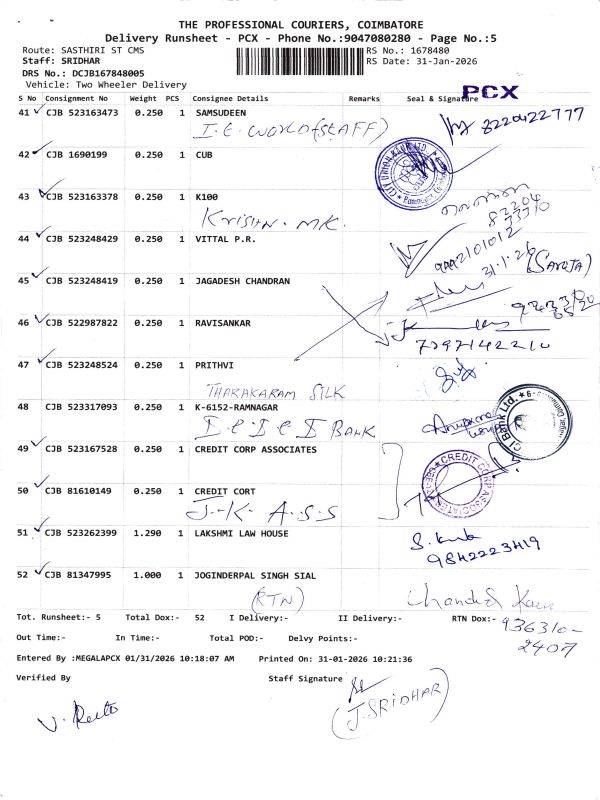 THE PROFESSIONAL COURIERS, COIMBATORE
Delivery Runsheet - PCX - Phone No.:9047080280 - Page No.:5
Route: SASTHIRI ST CMS
RS No.: 1678480
Staff: SRIDHAR
RS Date: 31-Jan-2026
DRS No.: DCJB167848005
Vehicle: Two Wheeler Delivery
PCX
S No Consignment No Weight PCS Consignee Details Remarks Seal & Signature
41 CJB 523163473 0.250 1 SAMSUDEEN
8220422777
42 CJB 1690199 0.250 1 CUB
43 CJB 523163378 0.250 1 K100
Krishn. MK.
44 CJB 523248429 0.250 1 VITTAL P.R.
31.1.26
(SAROJA)
45 CJB 523248419 0.250 1 JAGADESH CHANDRAN
46 CJB 522987822 0.250 1 RAVISANKAR
47 CJB 523248524 0.250 1 PRITHVI
THARAKARAM SILK
48 CJB 523317093 0.250 1 K-6152-RAMNAGAR
I C I C I BANK
49 CJB 523167528 0.250 1 CREDIT CORP ASSOCIATES
CREDIT CORP ASSOCIATES
50 CJB 81610149 0.250 1 CREDIT CORT
J-K A.S.S
51 CJB 523262399 1.290 1 LAKSHMI LAW HOUSE
9842223419
52 CJB 81347995 1.000 1 JOGINDERPAL SINGH SIAL
(RTN)
Tot. Runsheet:- 5 Total Dox:- 52 I Delivery:- II Delivery:- RTN Dox:-
936310-
2407
Out Time:- In Time:- Total POD:- Delvy Points:-
Entered By :MEGALAPCX 01/31/2026 10:18:07 AM Printed On: 31-01-2026 10:21:36
Verified By Staff Signature
(J.SRIDHAR)